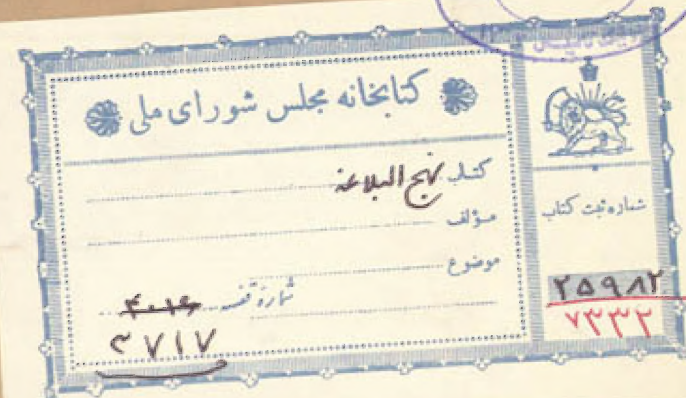 کتابخانه مجلس شورای ملی
کتاب نهج البلاغه
مؤلف
موضوع
شمارهٔ قفسه
۳۷۱۷
شماره ثبت کتاب
۲۵۹۸۲
۷۳۳۲